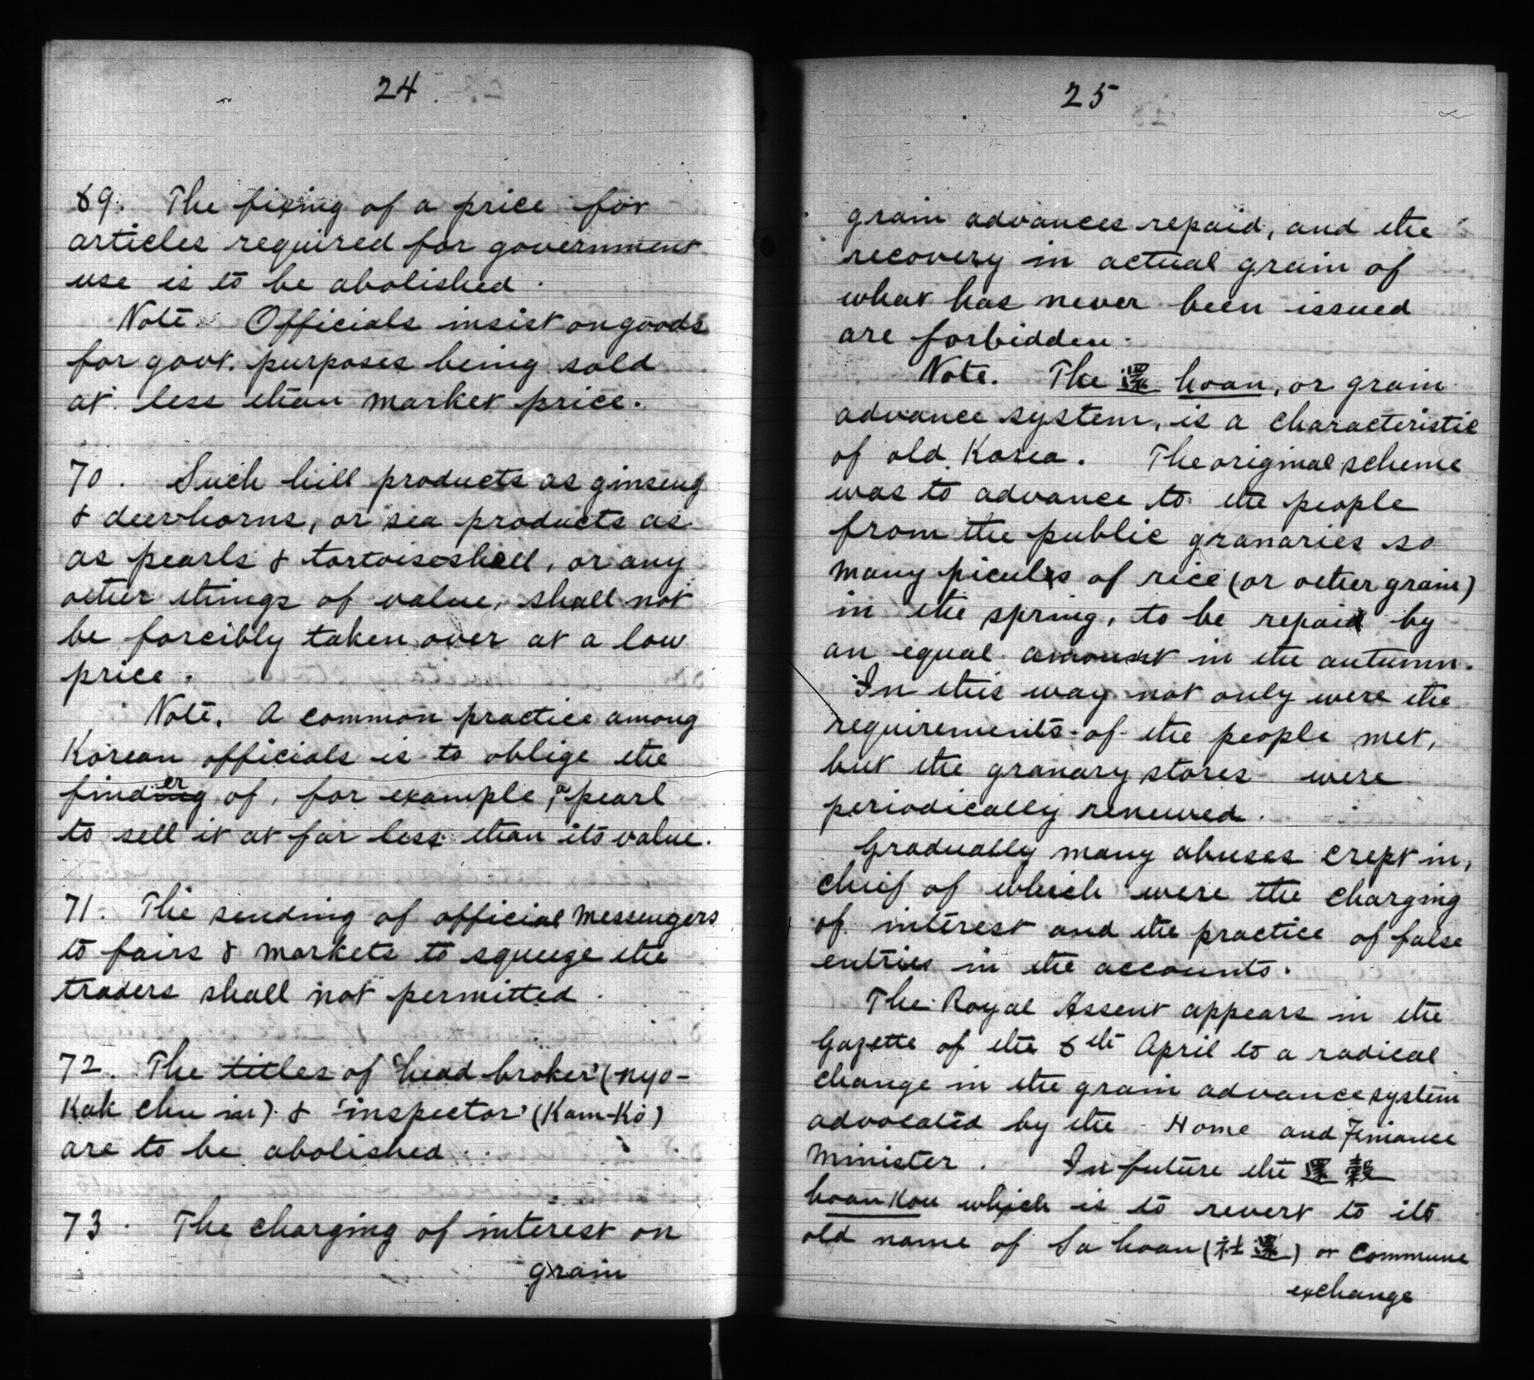 24
69. The fixing of a price for
articles required for government
use is to be abolished.
Note. Officials insist on goods
for govt. purposes being sold
at less than market price.
70. Such hill products as ginseng
& deerhorns, or sea products as
as pearls & tortoiseshell, or any
other things of value, shall not
be forcibly taken over at a low
price.
Note. A common practice among
Korean officials is to oblige the
finder of, for example, a pearl
to sell it at far less than its value.
71. The sending of official messengers
to fairs & markets to squeeze the
traders shall not permitted.
72. The titles of 'head broker' (nyo-
Kak chu in) & 'inspector' (Kam-Ko)
are to be abolished.
73. The charging of interest on
grain
25
grain advances repaid, and the
recovery in actual grain of
what has never been issued
are forbidden.
Note. The 還 hoan, or grain
advance system, is a characteristic
of old Korea. The original scheme
was to advance to the people
from the public granaries so
many piculs of rice (or other grain)
in the spring, to be repaid by
an equal amount in the autumn.
In this way not only were the
requirements of the people met,
but the granary stores were
periodically renewed.
Gradually many abuses crept in,
chief of which were the charging
of interest and the practice of false
entries in the accounts.
The Royal Assent appears in the
Gazette of the 6th April to a radical
change in the grain advance system
advocated by the Home and Finance
Minister. In future the 還穀
hoan Kou which is to revert to its
old name of Sa hoan (社還) or Commune
exchange